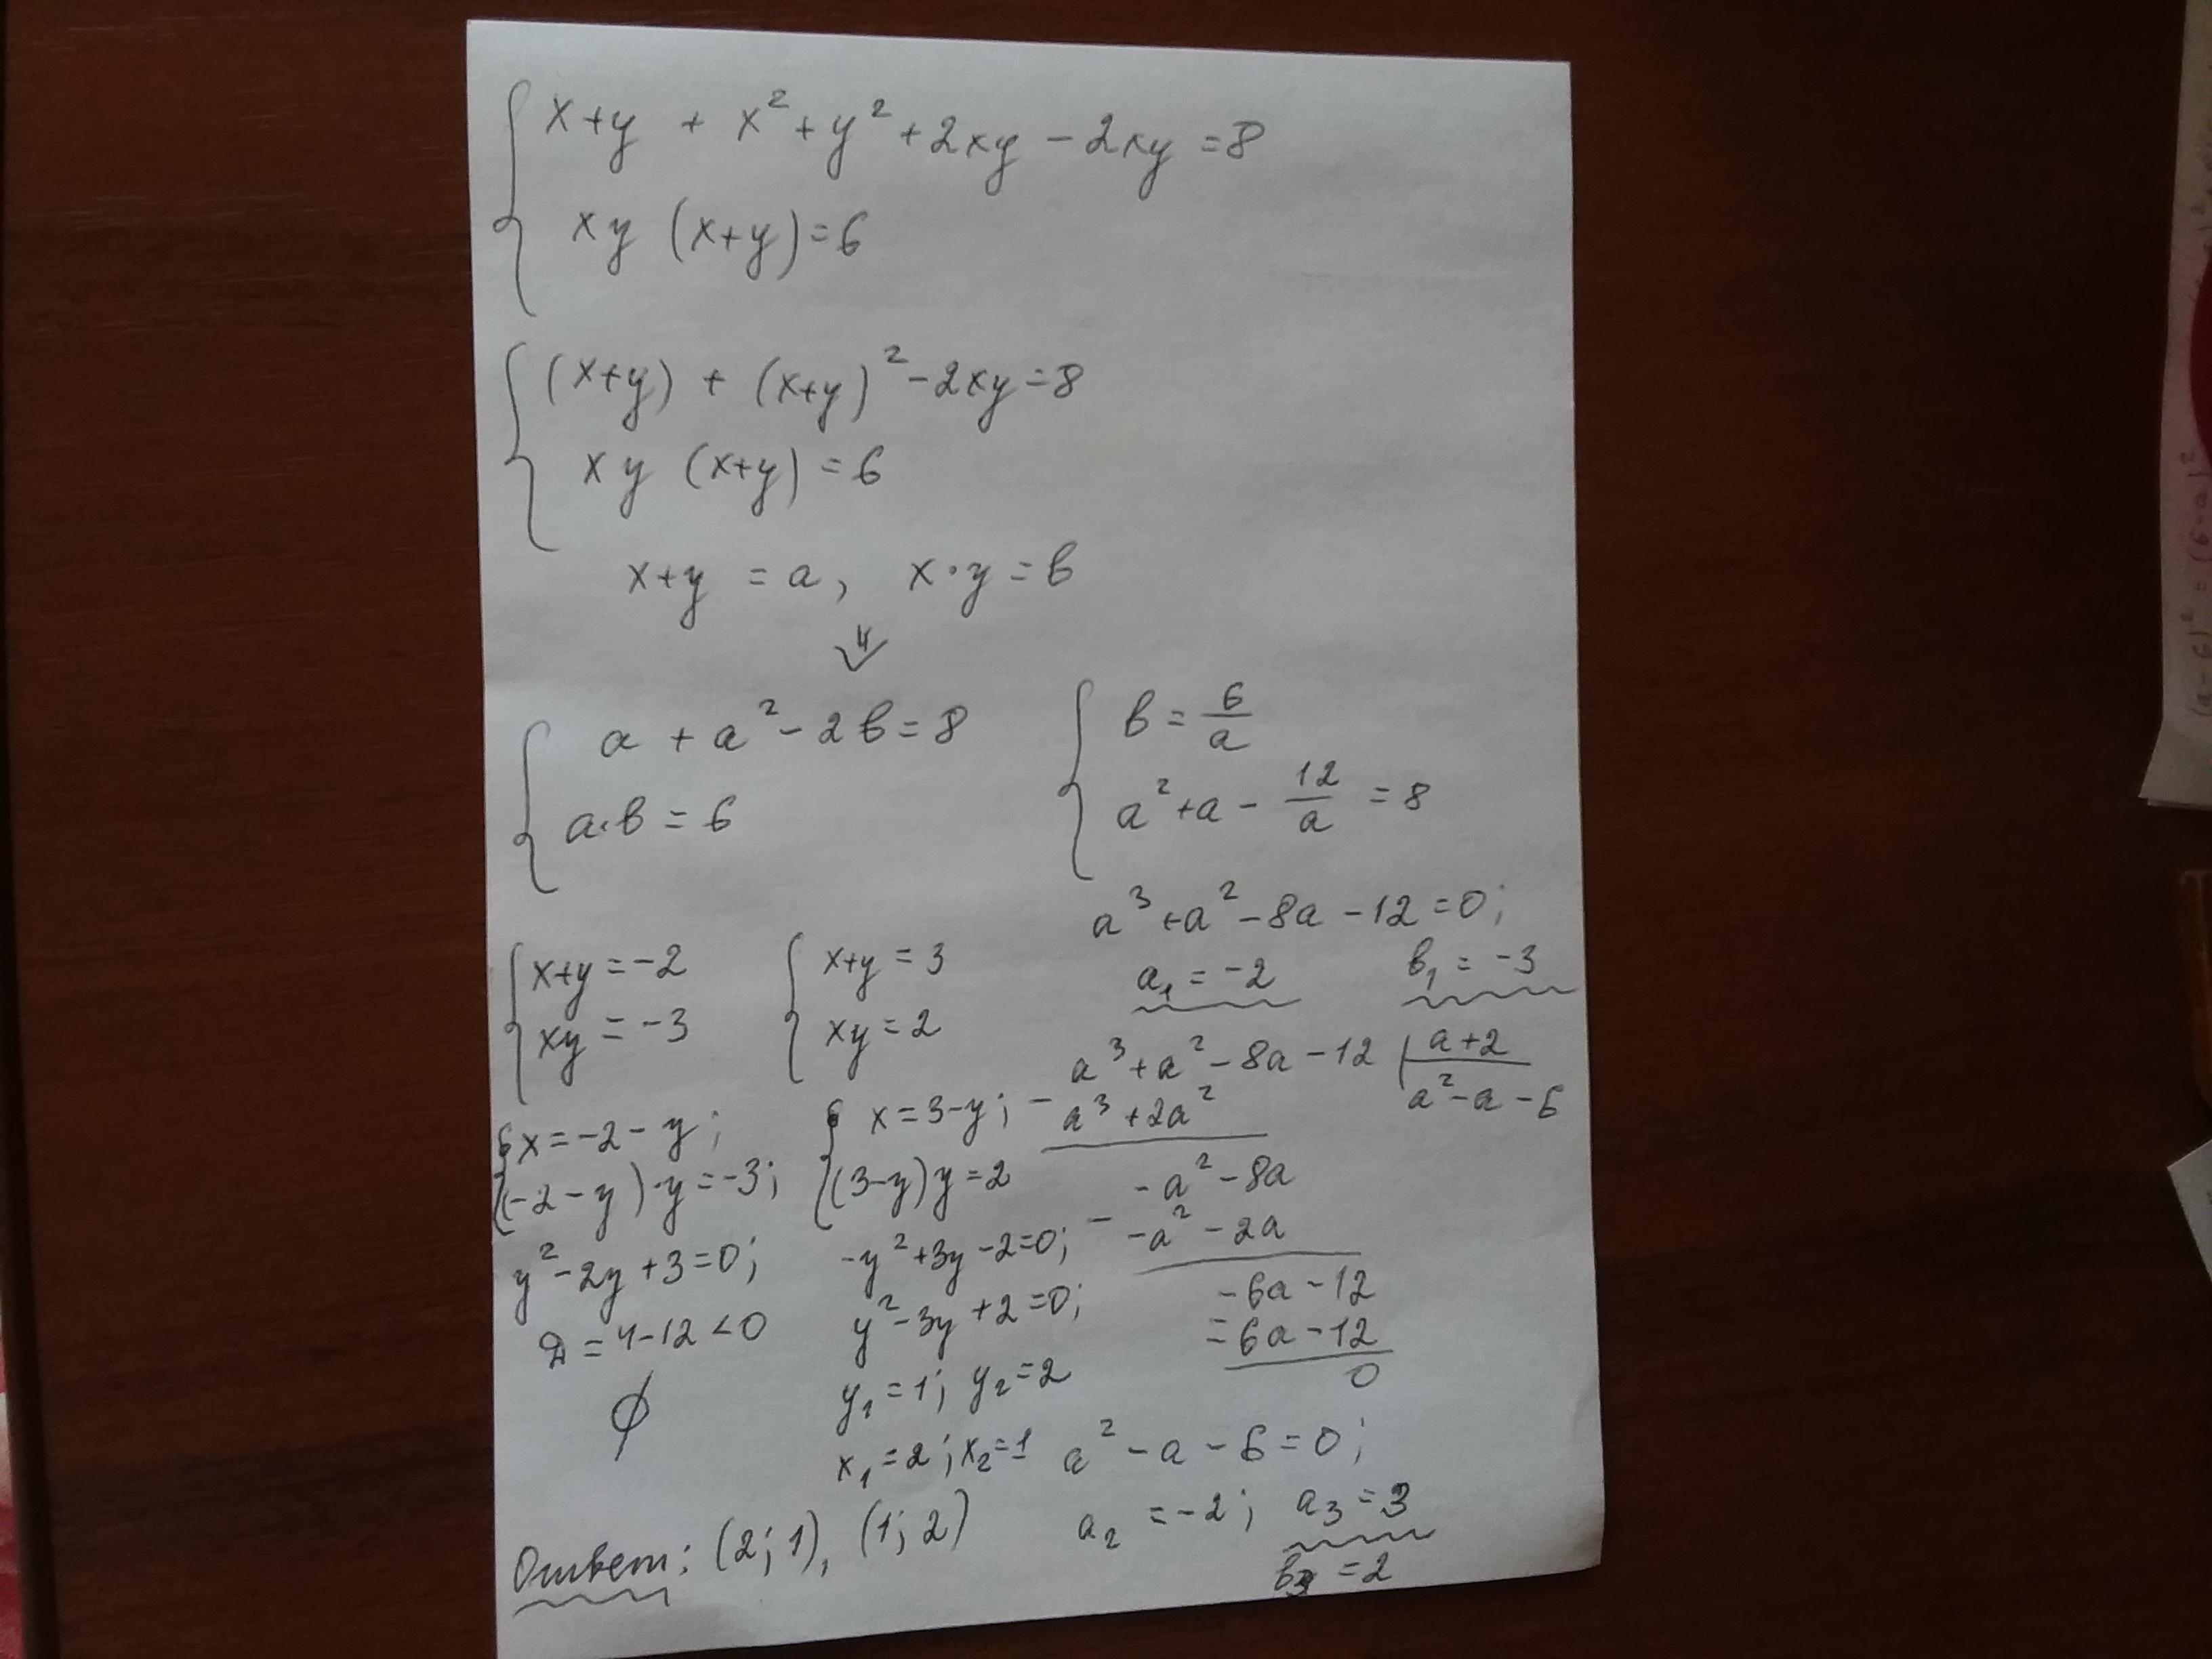 x+y + x² + y² + 2xy - 2xy = 8
xy (x+y) = 6
(x+y) + (x+y)² - 2xy = 8
xy (x+y) = 6
x+y = a, x·y = в
⇓
a + a² - 2в = 8
a·в = 6
в = 6/a
a² + a - 12/a = 8
a³ + a² - 8a - 12 = 0;
a₁ = -2 в₁ = -3
a³ + a² - 8a - 12 | a+2
- a³ + 2a² a² - a - 6
- a² - 8a
- -a² - 2a
-6a - 12
= 6a - 12
0
a² - a - 6 = 0;
a₂ = -2; a₃ = 3
в₃ = 2
x+y = -2
xy = -3
x = -2 - y;
(-2 - y)·y = -3;
y² - 2y + 3 = 0;
D = 4 - 12 < 0
∅
x+y = 3
xy = 2
x = 3-y;
(3-y)y = 2
-y² + 3y - 2 = 0;
y² - 3y + 2 = 0;
y₁ = 1; y₂ = 2
x₁ = 2; x₂ = 1
Ответ: (2; 1), (1; 2)